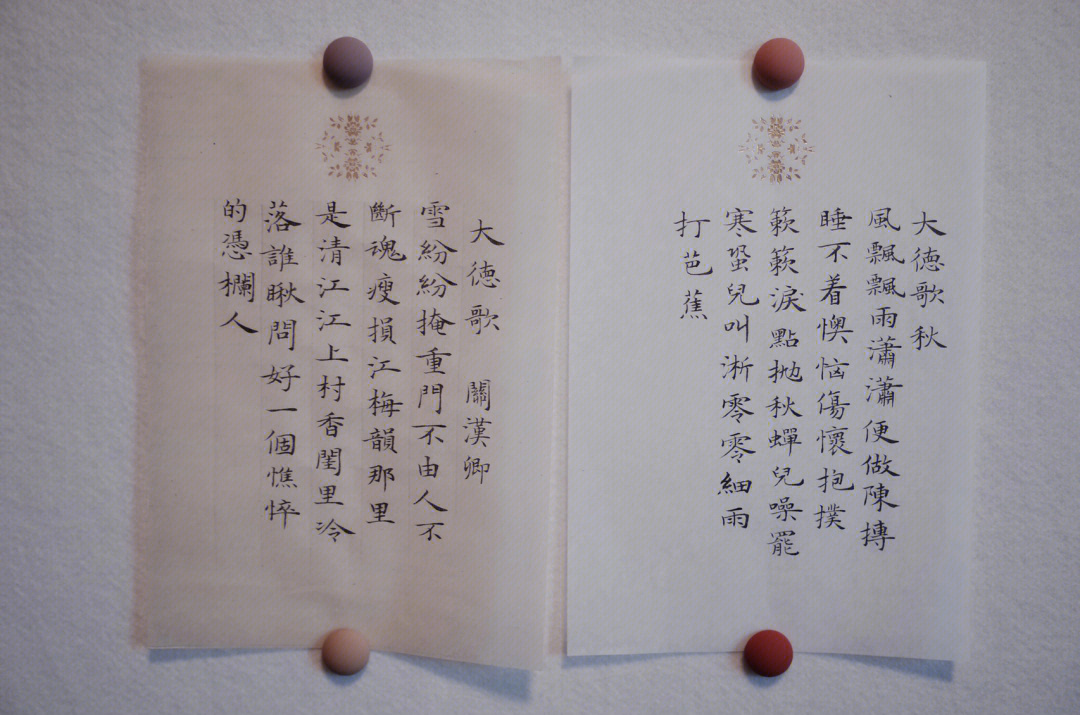 大德歌秋
風飄飄雨瀟瀟便做陳摶
睡不着懊恼傷懷抱撲
簌簌淚點抛秋蟬兒噪罷
寒蛩兒叫淅零零細雨
打芭蕉
大德歌 關漢卿
雪紛紛掩重門不由人不
斷魂瘦損江梅韻那里
是清江江上村香閨里冷
落誰瞅問好一個憔悴
的憑欄人